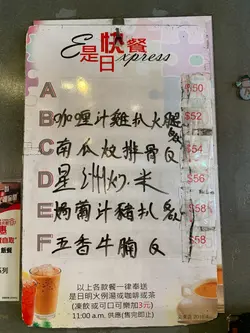 Express
是日快餐
A $50
B 咖喱汁雞扒火腿飯 $52
C 南瓜炆排骨反 $54
D 星洲炒米 $55
E 焗葡汁豬扒飯 $58
F 五香牛腩反 $58
以上各款餐一律奉送
是日明火例湯或咖啡或茶
(凍飲或可口可樂加3元)
11:00 a.m. 供應(售完即止)